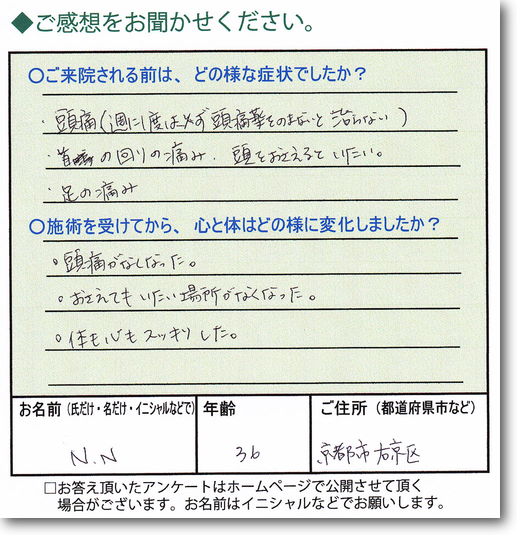 ◆ご感想をお聞かせください。
〇ご来院される前は、どの様な症状でしたか？
・頭痛(週に1度は必ず頭痛薬をのまないと治らない)
・首の回りの痛み．頭をおさえるといたい。
・足の痛み
〇施術を受けてから、心と体はどの様に変化しましたか？
。頭痛がなくなった。
。おさえてもいたい場所がなくなった。
。体も心もスッキリした。
お名前（氏だけ・名だけ・イニシャルなどで） 年齢 ご住所（都道府県市など）
N.N 36 京都市右京区
□お答え頂いたアンケートはホームページで公開させて頂く
場合がございます。お名前はイニシャルなどでお願いします。